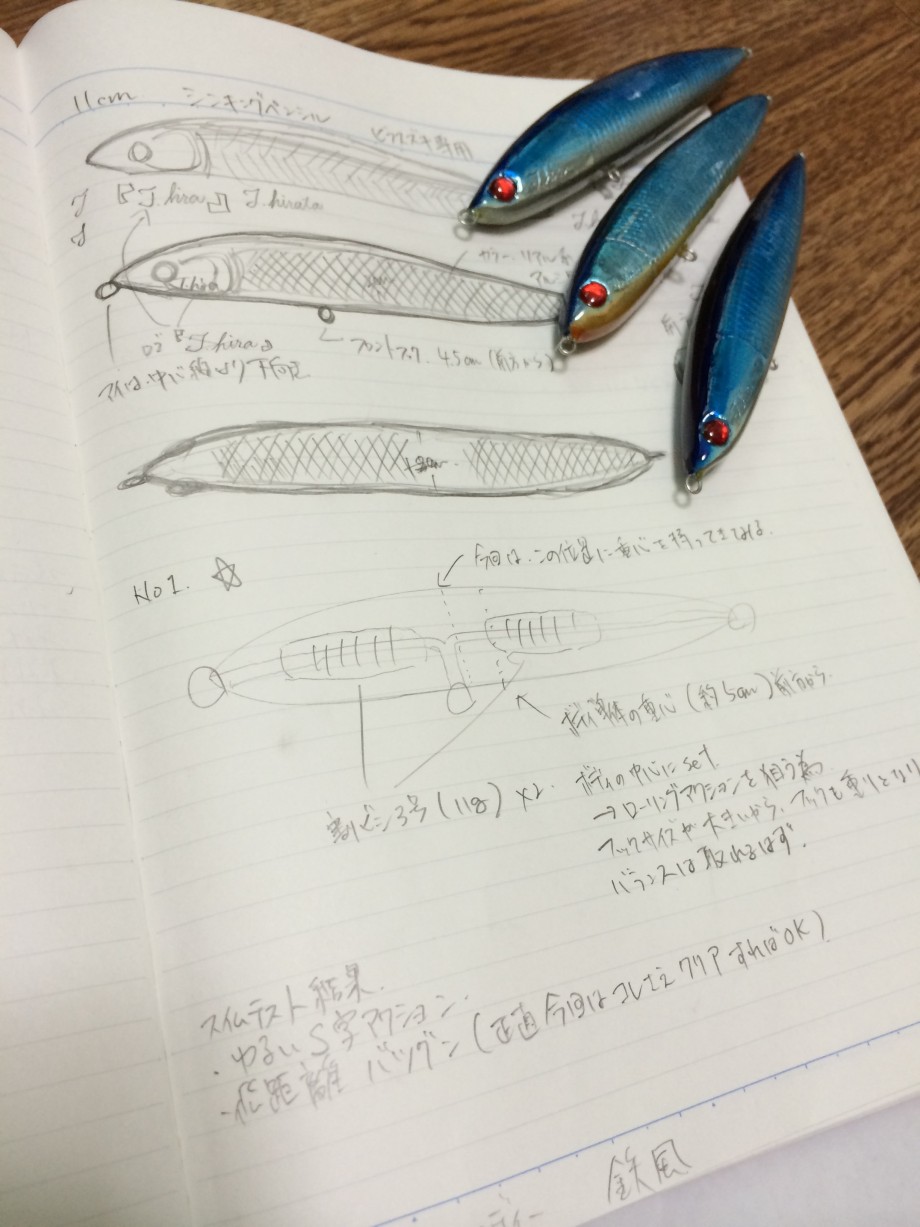 11cm シンキングペンシル
ヒラスズキ専用
J 『J.hira』 J.hirata
J
カラー リアル系
J.hira
ロゴ『J.hira』
フロントフック 4.5cm (前方から)
アイは、中心線より下向き
No1. ☆
今回は、この位置に重心を持ってきてみる。
ボディ単体の重心 (約5cm) 前方から
割ビシ3号 (11g) ×2. ボディの中心に set
→ ローリングアクションを狙う為
フックサイズが大きいから、フックも重りとなり
バランスは取れるはず.
スイムテスト結果.
・ゆるいS字アクション.
・飛距離 バツグン (正直今回はコレさえクリアすればOK)
鉄風